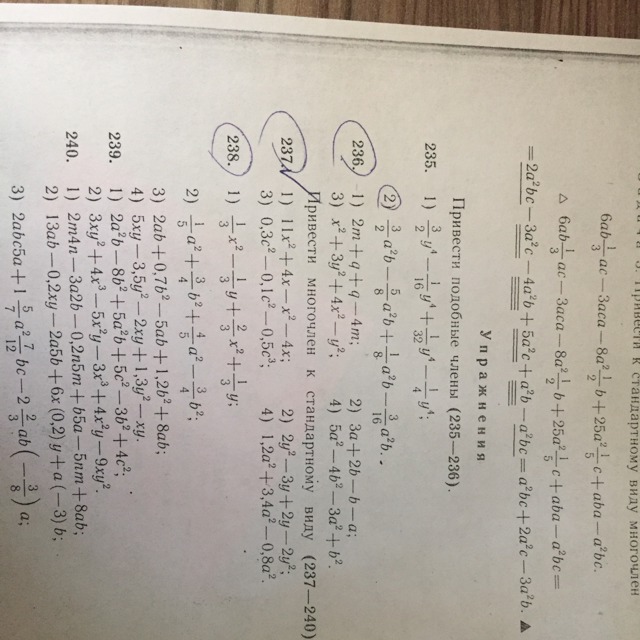 Привести к стандартному виду многочлен
6ab\frac{1}{3}ac − 3aca − 8a²\frac{1}{2}b + 25a²\frac{1}{5}c + aba − a²bc.
△ 6ab\frac{1}{3}ac − 3aca − 8a²\frac{1}{2}b + 25a²\frac{1}{5}c + aba − a²bc =
= 2a²bc − 3a²c − 4a²b + 5a²c + a²b − a²bc = a²bc + 2a²c − 3a²b. ▲
Упражнения
Привести подобные члены (235—236).
235. 1) \frac{3}{2}y⁴ − \frac{1}{16}y⁴ + \frac{1}{32}y⁴ − \frac{1}{4}y⁴;
2) \frac{3}{2}a²b − \frac{5}{8}a²b + \frac{1}{8}a²b − \frac{3}{16}a²b.
236. 1) 2m + q + q − 4m; 2) 3a + 2b − b − a;
3) x² + 3y² + 4x² − y²; 4) 5a² − 4b² − 3a² + b².
Привести многочлен к стандартному виду (237—240)
237. 1) 11x² + 4x − x² − 4x; 2) 2y² − 3y + 2y − 2y²;
3) 0,3c² − 0,1c² − 0,5c³; 4) 1,2a² + 3,4a² − 0,8a².
238. 1) \frac{1}{3}x² − \frac{1}{3}y + \frac{2}{3}x² + \frac{1}{3}y;
2) \frac{1}{5}a² + \frac{3}{4}b² + \frac{4}{5}a² − \frac{3}{4}b²;
3) 2ab + 0,7b² − 5ab + 1,2b² + 8ab;
4) 5xy − 3,5y² − 2xy + 1,3y² − xy.
239. 1) 2a²b − 8b² + 5a²b + 5c² − 3b² + 4c²;
2) 3xy² + 4x³ − 5x²y − 3x³ + 4x²y − 9xy².
240. 1) 2m4n − 3a2b − 0,2n5m + b5a − 5nm + 8ab;
2) 13ab − 0,2xy − 2a5b + 6x (0,2) y + a (−3) b;
3) 2abc5a + 1\frac{5}{7}a²\frac{7}{12}bc − 2\frac{2}{3}ab(−\frac{3}{8})a;